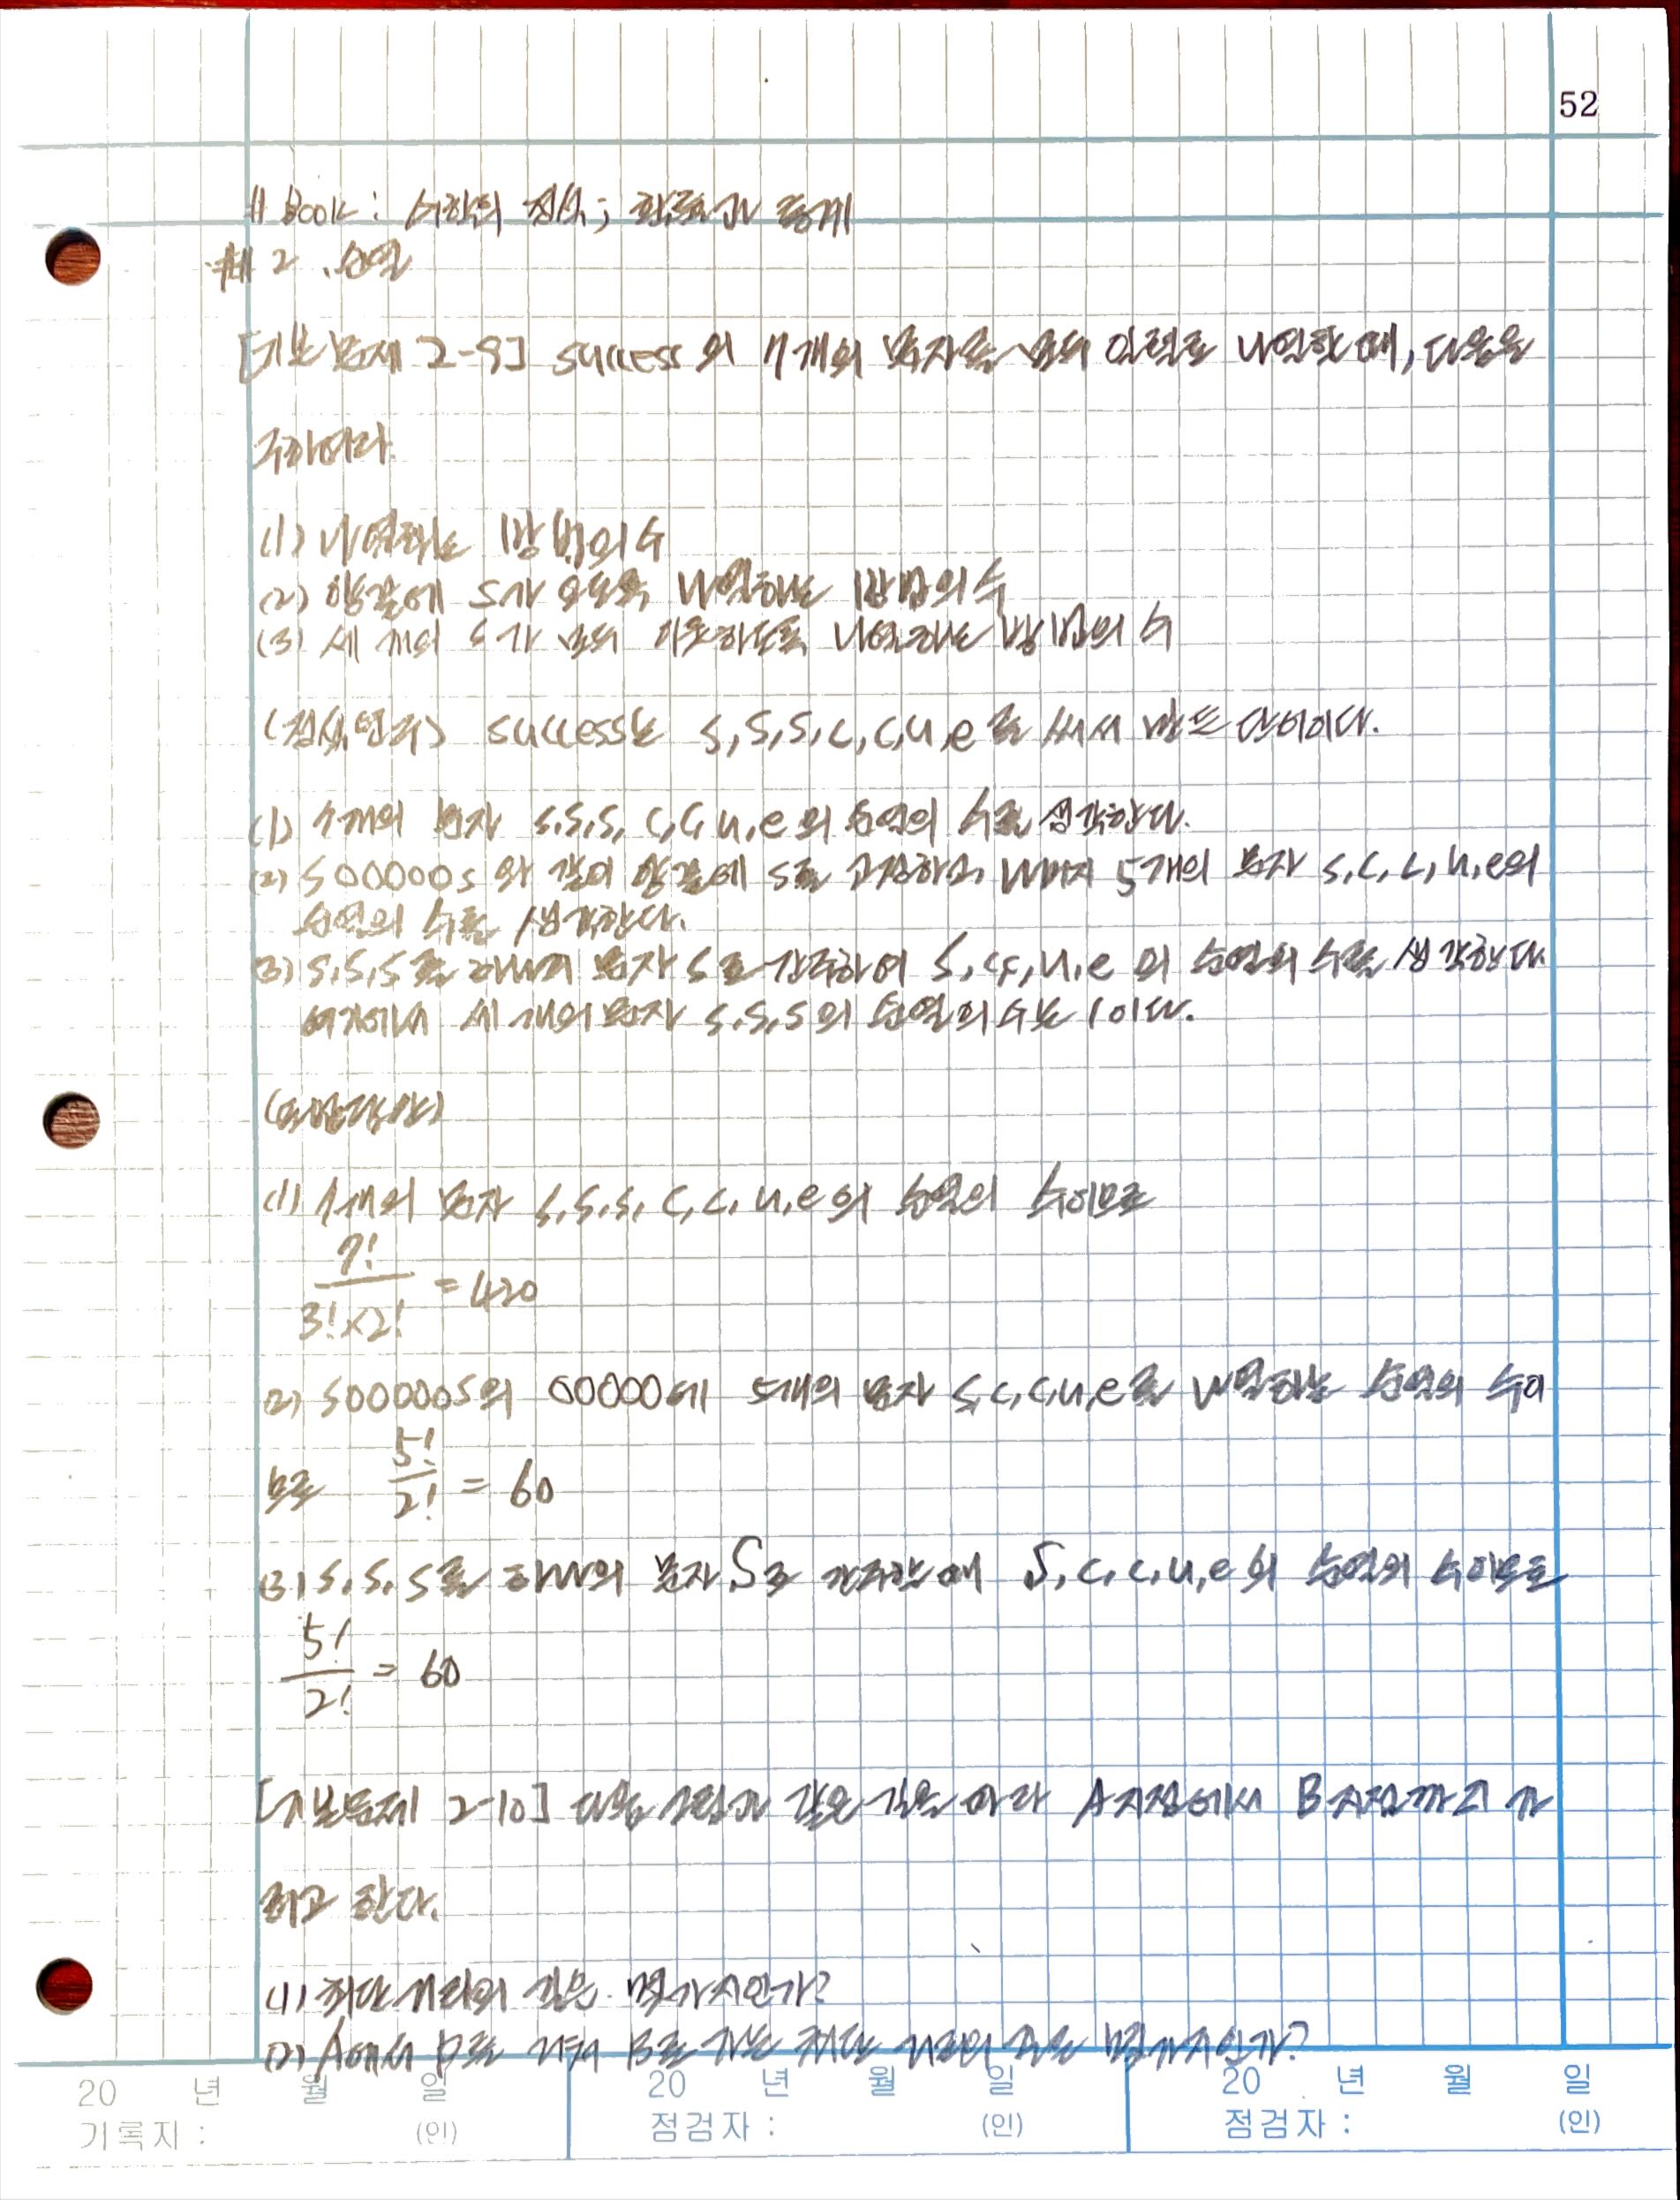 52
# Book : 수학의 정석; 확률과 통계
## 2. 순열
[기본문제 2-9] success의 7개의 문자를 모두 일렬로 나열할 때, 다음을
구하여라.
(1) 나열하는 방법의 수
(2) 양끝에 s가 오도록 나열하는 방법의 수
(3) 세 개의 s가 모두 이웃하도록 나열하는 방법의 수
(정석연구) success는 s, s, s, c, c, u, e를 써서 만든 단어이다.
(1) 7개의 문자 s, s, s, c, c, u, e의 순열의 수를 생각한다.
(2) s00000s와 같이 양끝에 s를 고정하고 나머지 5개의 문자 s, c, c, u, e의
순열의 수를 생각한다.
(3) s, s, s를 하나의 문자 S로 간주하여 S, c, c, u, e의 순열의 수를 생각한다.
여기에서 세 개의 문자 s, s, s의 순열의 수는 1이다.
(모범답안)
(1) 7개의 문자 s, s, s, c, c, u, e의 순열의 수이므로
7!/(3!×2!) = 420
(2) s00000s의 00000에 5개의 문자 s, c, c, u, e를 나열하는 순열의 수이
므로 5!/2! = 60
(3) s, s, s를 하나의 문자 S로 간주할 때 S, c, c, u, e의 순열의 수이므로
5!/2! = 60
[기본문제 2-10] 다음 그림과 같은 길을 따라 A지점에서 B지점까지 가
려고 한다.
(1) 최단 거리의 길은 몇가지인가?
(2) A에서 P를 거쳐 B로 가는 최단 거리의 길은 몇가지인가?
20 년 월 일 20 년 월 일 20 년 월 일
기록자 : (인) 점검자 : (인) 점검자 : (인)